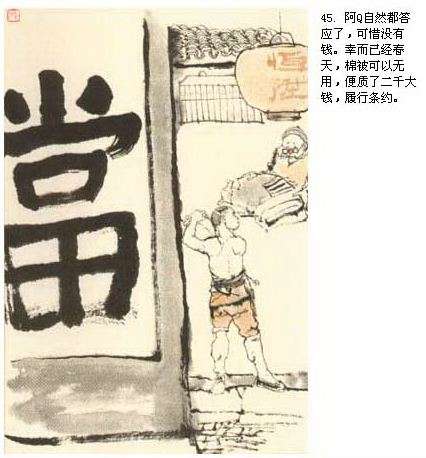 當
45. 阿Q自然都答
应了，可惜没有
钱。幸而已经春
天，棉被可以无
用，便质了二千大
钱，履行条约。